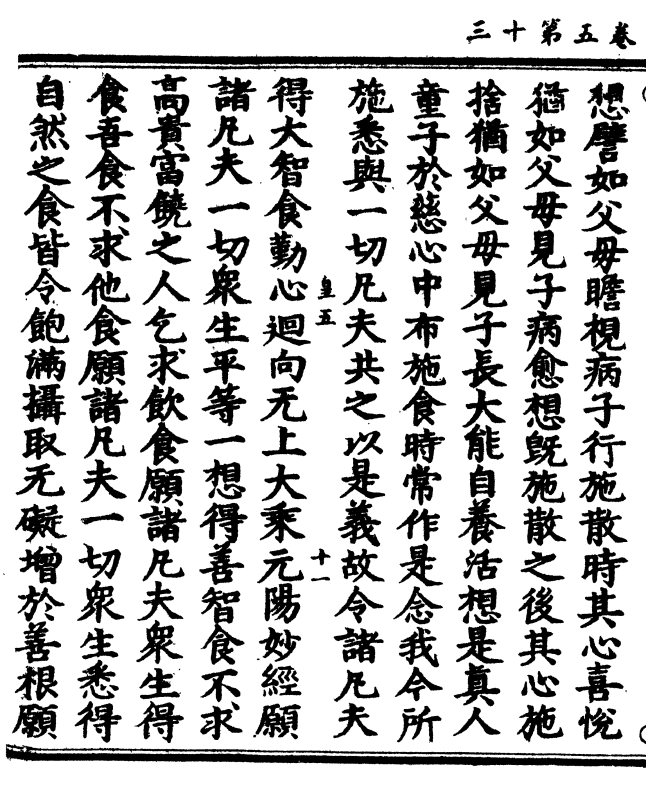 卷五第十三
想譬如父母瞻視病子行施散時其心喜悅
猶如父母見子病愈想旣施散之後其心施
捨猶如父母見子長大能自養活想是真人
童子於慈心中布施食時常作是念我今所
施悉與一切凡夫共之以是義故令諸凡夫
皇五
十一
得大智食勤心迴向无上大乘元陽妙經願
諸凡夫一切衆生平等一想得善智食不求
高貴富饒之人乞求飲食願諸凡夫衆生得
食吾食不求他食願諸凡夫一切衆生悉得
自然之食皆令飽滿攝取无礙增於善根願